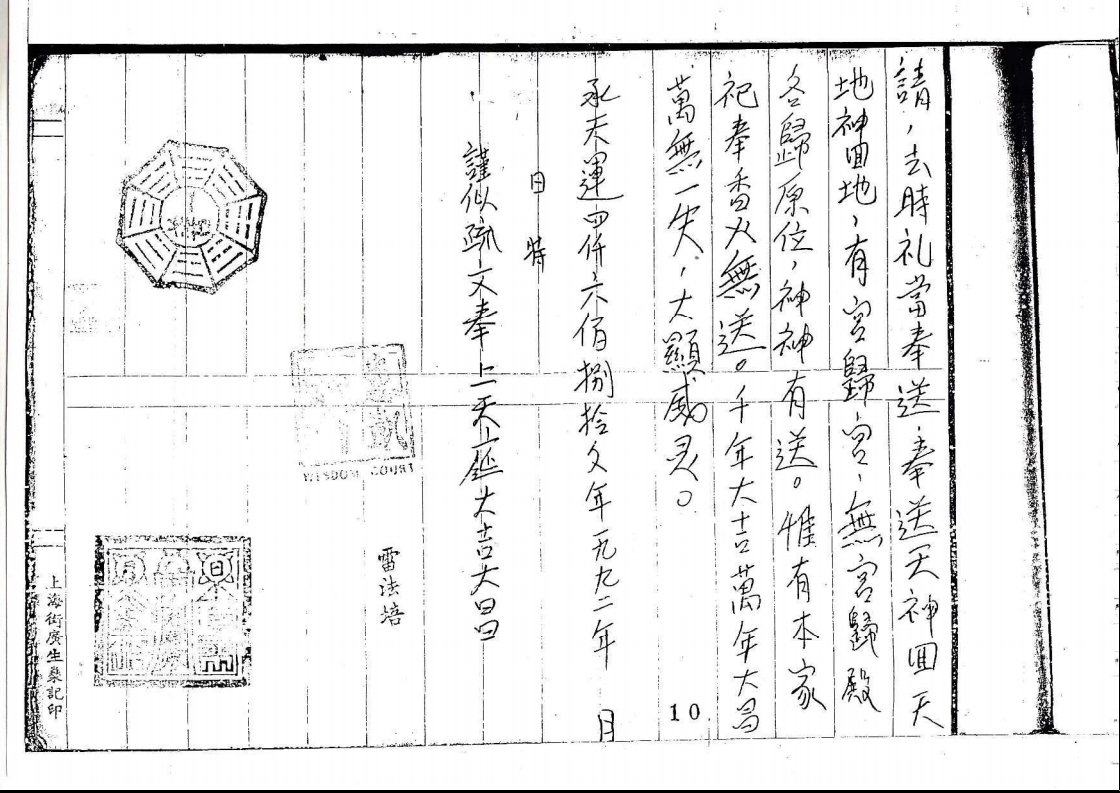 請，去時礼當奉送，奉送天神囬天
地神囬地，有宮歸宮，無宮歸殿
各歸原位，神神有送。惟有本家
祀奉香火無送。千年大吉萬年大昌
萬無一失，大顯威灵。
10
承天運四仟六佰捌拾文年一九九二年 月
日 時
謹似疏文奉上天庭大吉大昌
雷法培
WISDOM COURT
日
月
上海街廣生燊記印